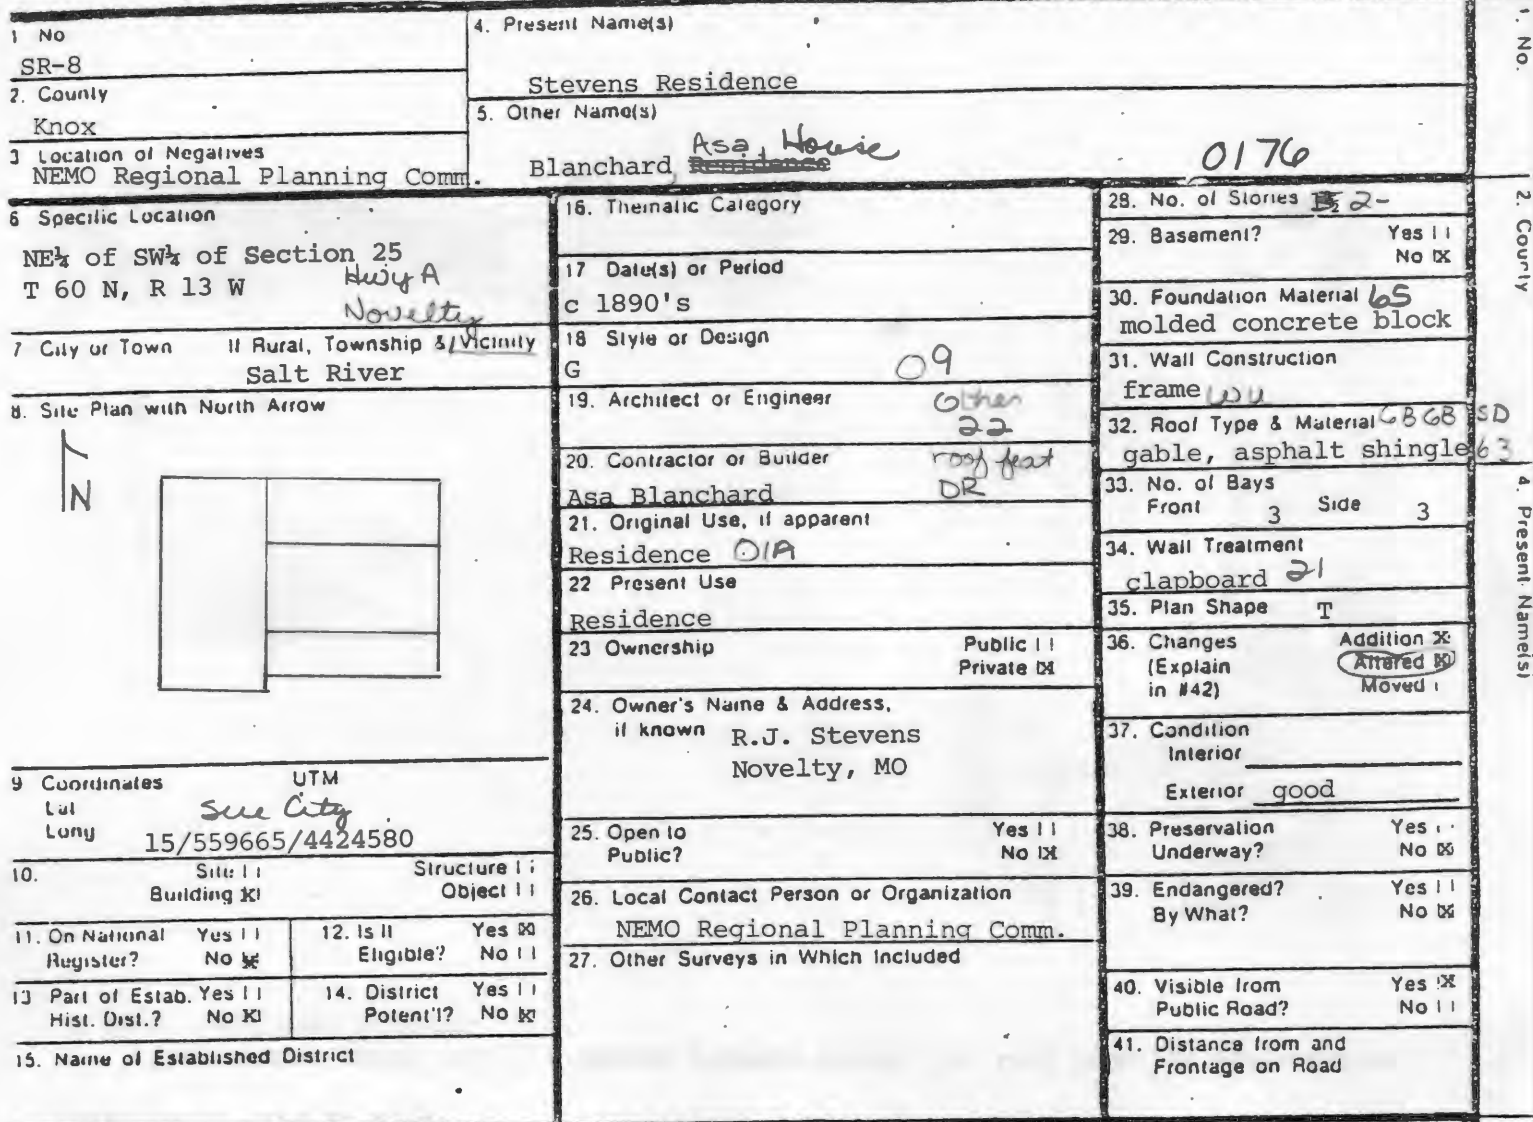 1 No
SR-8
2. County
Knox
3 Location of Negatives
NEMO Regional Planning Comm.
4. Present Name(s)
Stevens Residence
5. Other Name(s)
Blanchard, Asa, House
Residence
0176
6 Specific Location
NE¼ of SW¼ of Section 25
T 60 N, R 13 W
Hwy A
Novelty
7 City or Town If Rural, Township & Vicinity
Salt River
8. Site Plan with North Arrow
N
9 Coordinates UTM
Lat
Long
Sue City
15/559665/4424580
10. Site | | Structure | |
Building X Object | |
11. On National Register? Yes | | No X
12. Is It Eligible? Yes X No | |
13 Part of Estab. Hist. Dist.? Yes | | No X
14. District Potent'l? Yes | | No X
15. Name of Established District
16. Thematic Category
17 Date(s) or Period
c 1890's
18 Style or Design
G 09
19. Architect or Engineer
Other
22
20. Contractor or Builder
roof feat
Asa Blanchard DR
21. Original Use, if apparent
Residence 01A
22 Present Use
Residence
23 Ownership Public | |
Private X
24. Owner's Name & Address,
if known R.J. Stevens
Novelty, MO
25. Open to Yes | |
Public? No X
26. Local Contact Person or Organization
NEMO Regional Planning Comm.
27. Other Surveys in Which Included
28. No. of Stories 2-
29. Basement? Yes | |
No X
30. Foundation Material 65
molded concrete block
31. Wall Construction
frame WU
32. Roof Type & Material GBGB SD
gable, asphalt shingle 63
33. No. of Bays
Front 3 Side 3
34. Wall Treatment
clapboard 21
35. Plan Shape T
36. Changes Addition X
(Explain Altered X
in #42) Moved |
37. Condition
Interior
Exterior good
38. Preservation Yes
Underway? No X
39. Endangered? Yes | |
By What? No X
40. Visible from Yes X
Public Road? No | |
41. Distance from and
Frontage on Road
1. No.
2. County
4. Present Name(s)